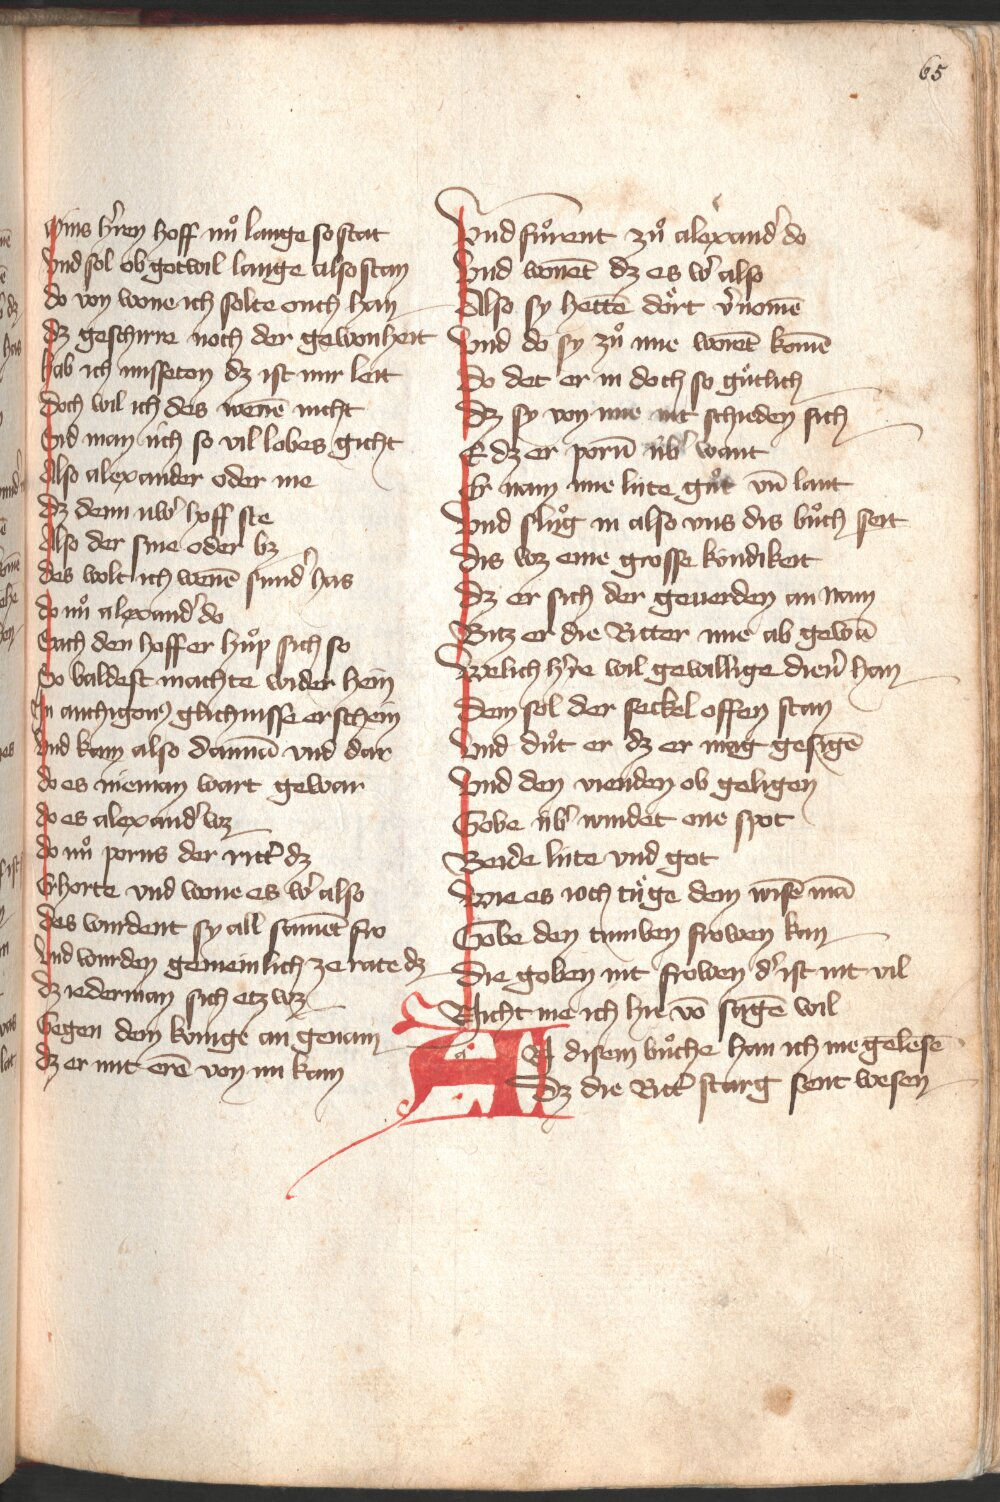 65
Mins h'ren hoff nuͦ lange so stat
Vnd sol ob got wil lange also stan
do von wone ich solte ouch han
dz geschirre noch der gewonheit
hab ich misseton dz ist mir leit
doch wil ich des wenē nicht
Sid man üch so vil lobes gicht
Also alexander oder me
dz denn uw' hoff ste
Also der sine oder bz
des wolt ich wenē sund' has
do nuͦ alexand' do
Nach den hoff er huͦp sich so
So baldest machte wider hein
In anthigonꝰ glichnisse erschein
Vnd kam also dannā vnd dar
do es nieman wart gewar
do es alexand' wz
do nuͦ porus der ritt' dz
Erhorte vnd wone es w' also
des wurdent sy all samēt fro
Vnd wurden gemeinlich ze rate dz
dz iederman sich etz wz
Gegen dem kunige an genam
dz er mit erē von im kam
Vnd fuͦrent zuͦ alexand' do
Vnd wonēt dz es w' also
Also sy hettē doͤrt v'nomē
Vnd do sy zuͦ ime worēt komē
Do det er in doch so guͤtlich
Dz sy von ime nit schieden sich
E dz er porū üb' want
Er nam ime lüte guͦt vn̄ lant
Vnd sluͦg in also vns dis buͦch seit
Dis wz eine grosse kündikeit
Dz er sich der geuerden an nam
Bitz er die Ritter ime ab gewā
Welich h're wil gewallige dien' han
Dem sol der seckel offen stan
Vnd duͦt er dz er mag gesigē
Vnd den vienden ob geligen
Gobe üb' windet one spot
Beide lüte vnd got
Wie es ioch tuͤge dem wisē mā
Gobe den tumben frowen kan
Die goben nit frowen d' ist nit vil
Nicht me ich hie vō sagē wil
AN disem buͦche han ich me gelesē
Dz die Ritt' starg sint wesen